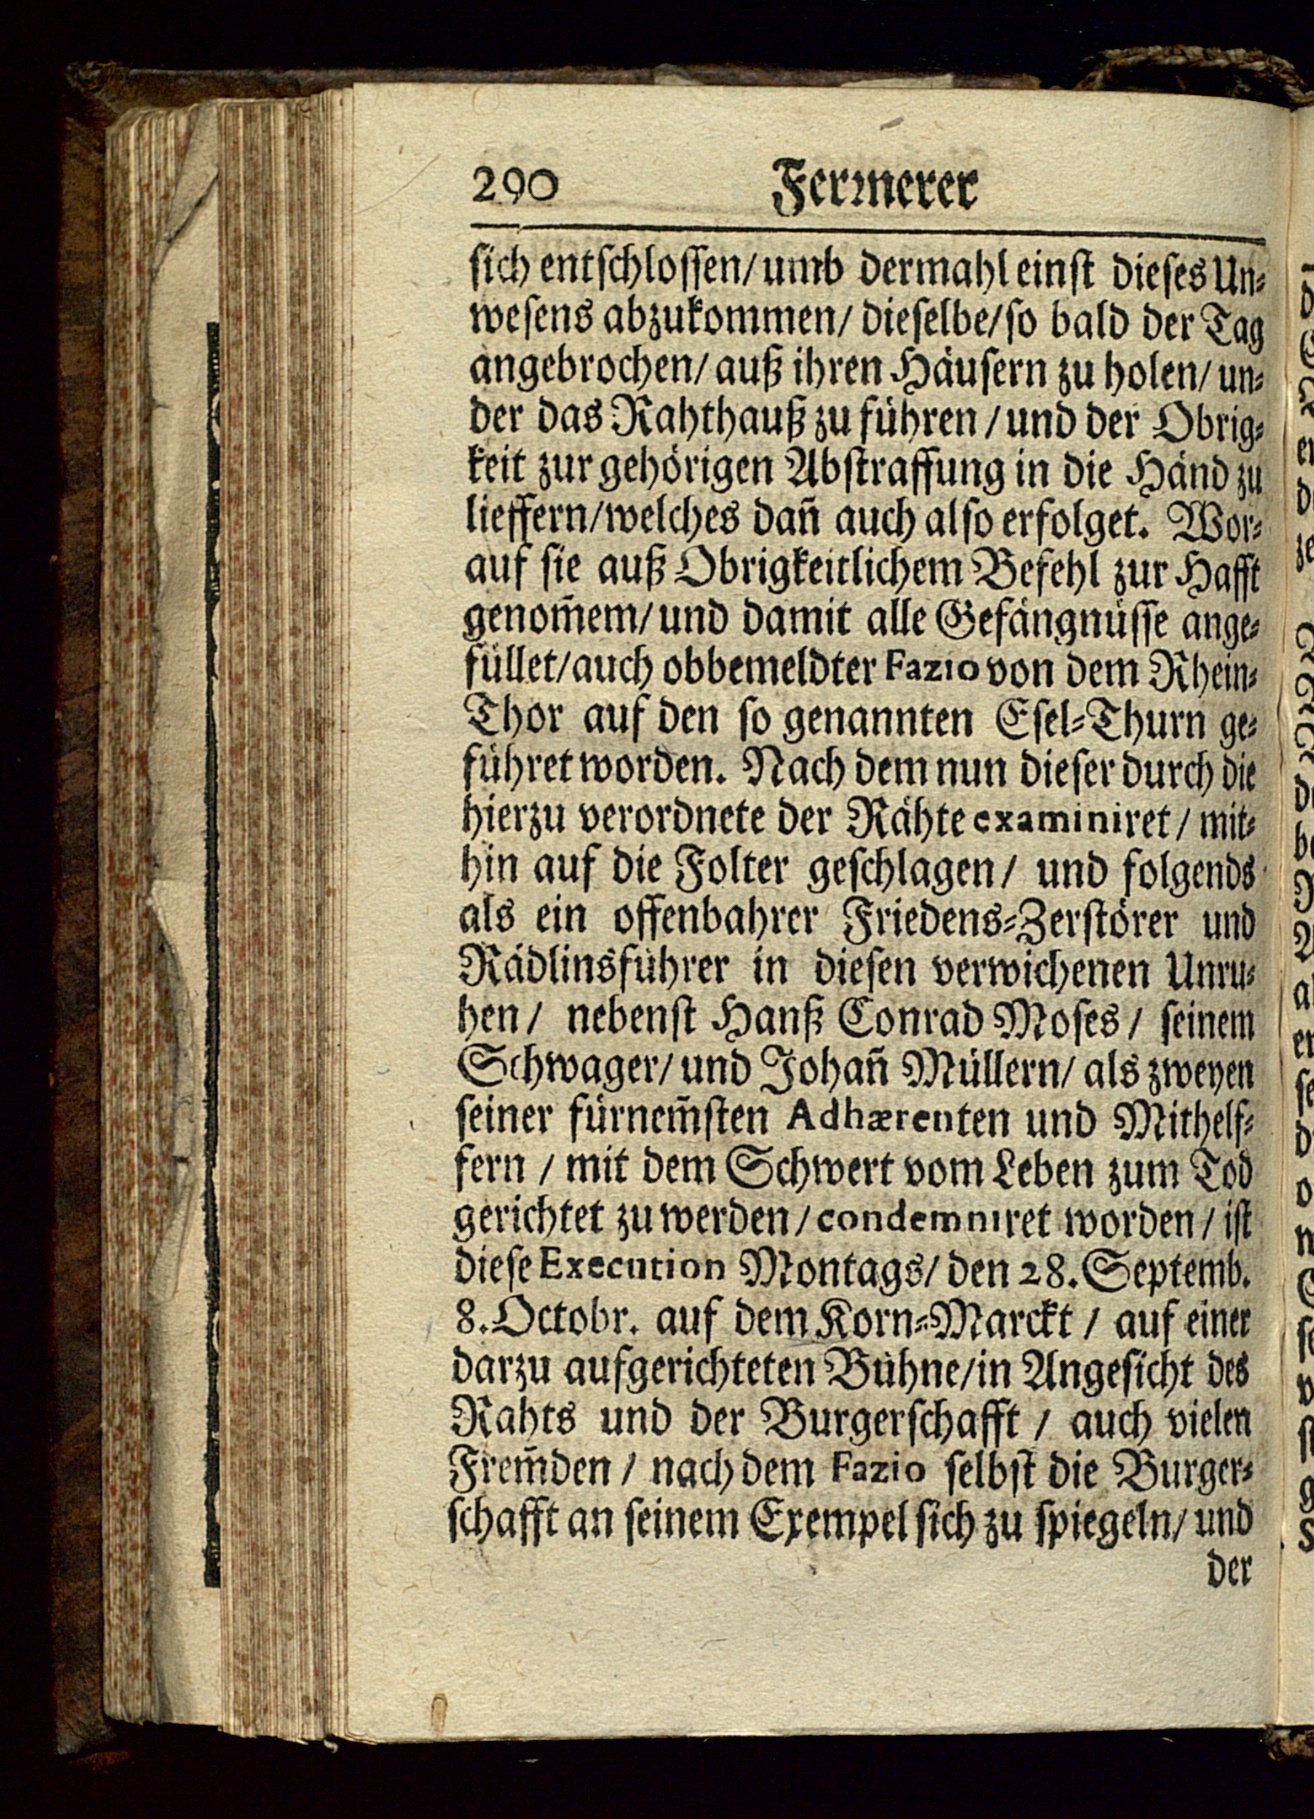 290 Fernerer
sich entschlossen/ umb dermahl einst dieses Un⸗
wesens abzukommen/ dieselbe/ so bald der Tag
angebrochen/ auß ihren Häusern zu holen/ un⸗
der das Rahthauß zu führen / und der Obrig⸗
keit zur gehörigen Abstraffung in die Händ zu
lieffern/welches dañ auch also erfolget. Wor⸗
auf sie auß Obrigkeitlichem Befehl zur Hafft
genom̃em/ und damit alle Gefängnüsse ange⸗
füllet/auch obbemeldter Fazio von dem Rhein⸗
Thor auf den so genannten Esel⸗Thurn ge⸗
führet worden. Nach dem nun dieser durch die
hierzu verordnete der Rähte examiniret / mit⸗
hin auf die Folter geschlagen/ und folgends
als ein offenbahrer Friedens⸗Zerstörer und
Rädlinsführer in diesen verwichenen Unru⸗
hen/ nebenst Hanß Conrad Moses / seinem
Schwager/ und Johañ Müllern/ als zweyen
seiner fürnem̃sten Adhærenten und Mithelf⸗
fern / mit dem Schwert vom Leben zum Tod
gerichtet zu werden / condemniret worden / ist
diese Execution Montags/ den 28. Septemb.
8. Octobr. auf dem Korn⸗Marckt / auf einer
darzu aufgerichteten Bühne/in Angesicht des
Rahts und der Burgerschafft / auch vielen
Frem̃den / nach dem Fazio selbst die Burger⸗
schafft an seinem Exempel sich zu spiegeln/ und
der